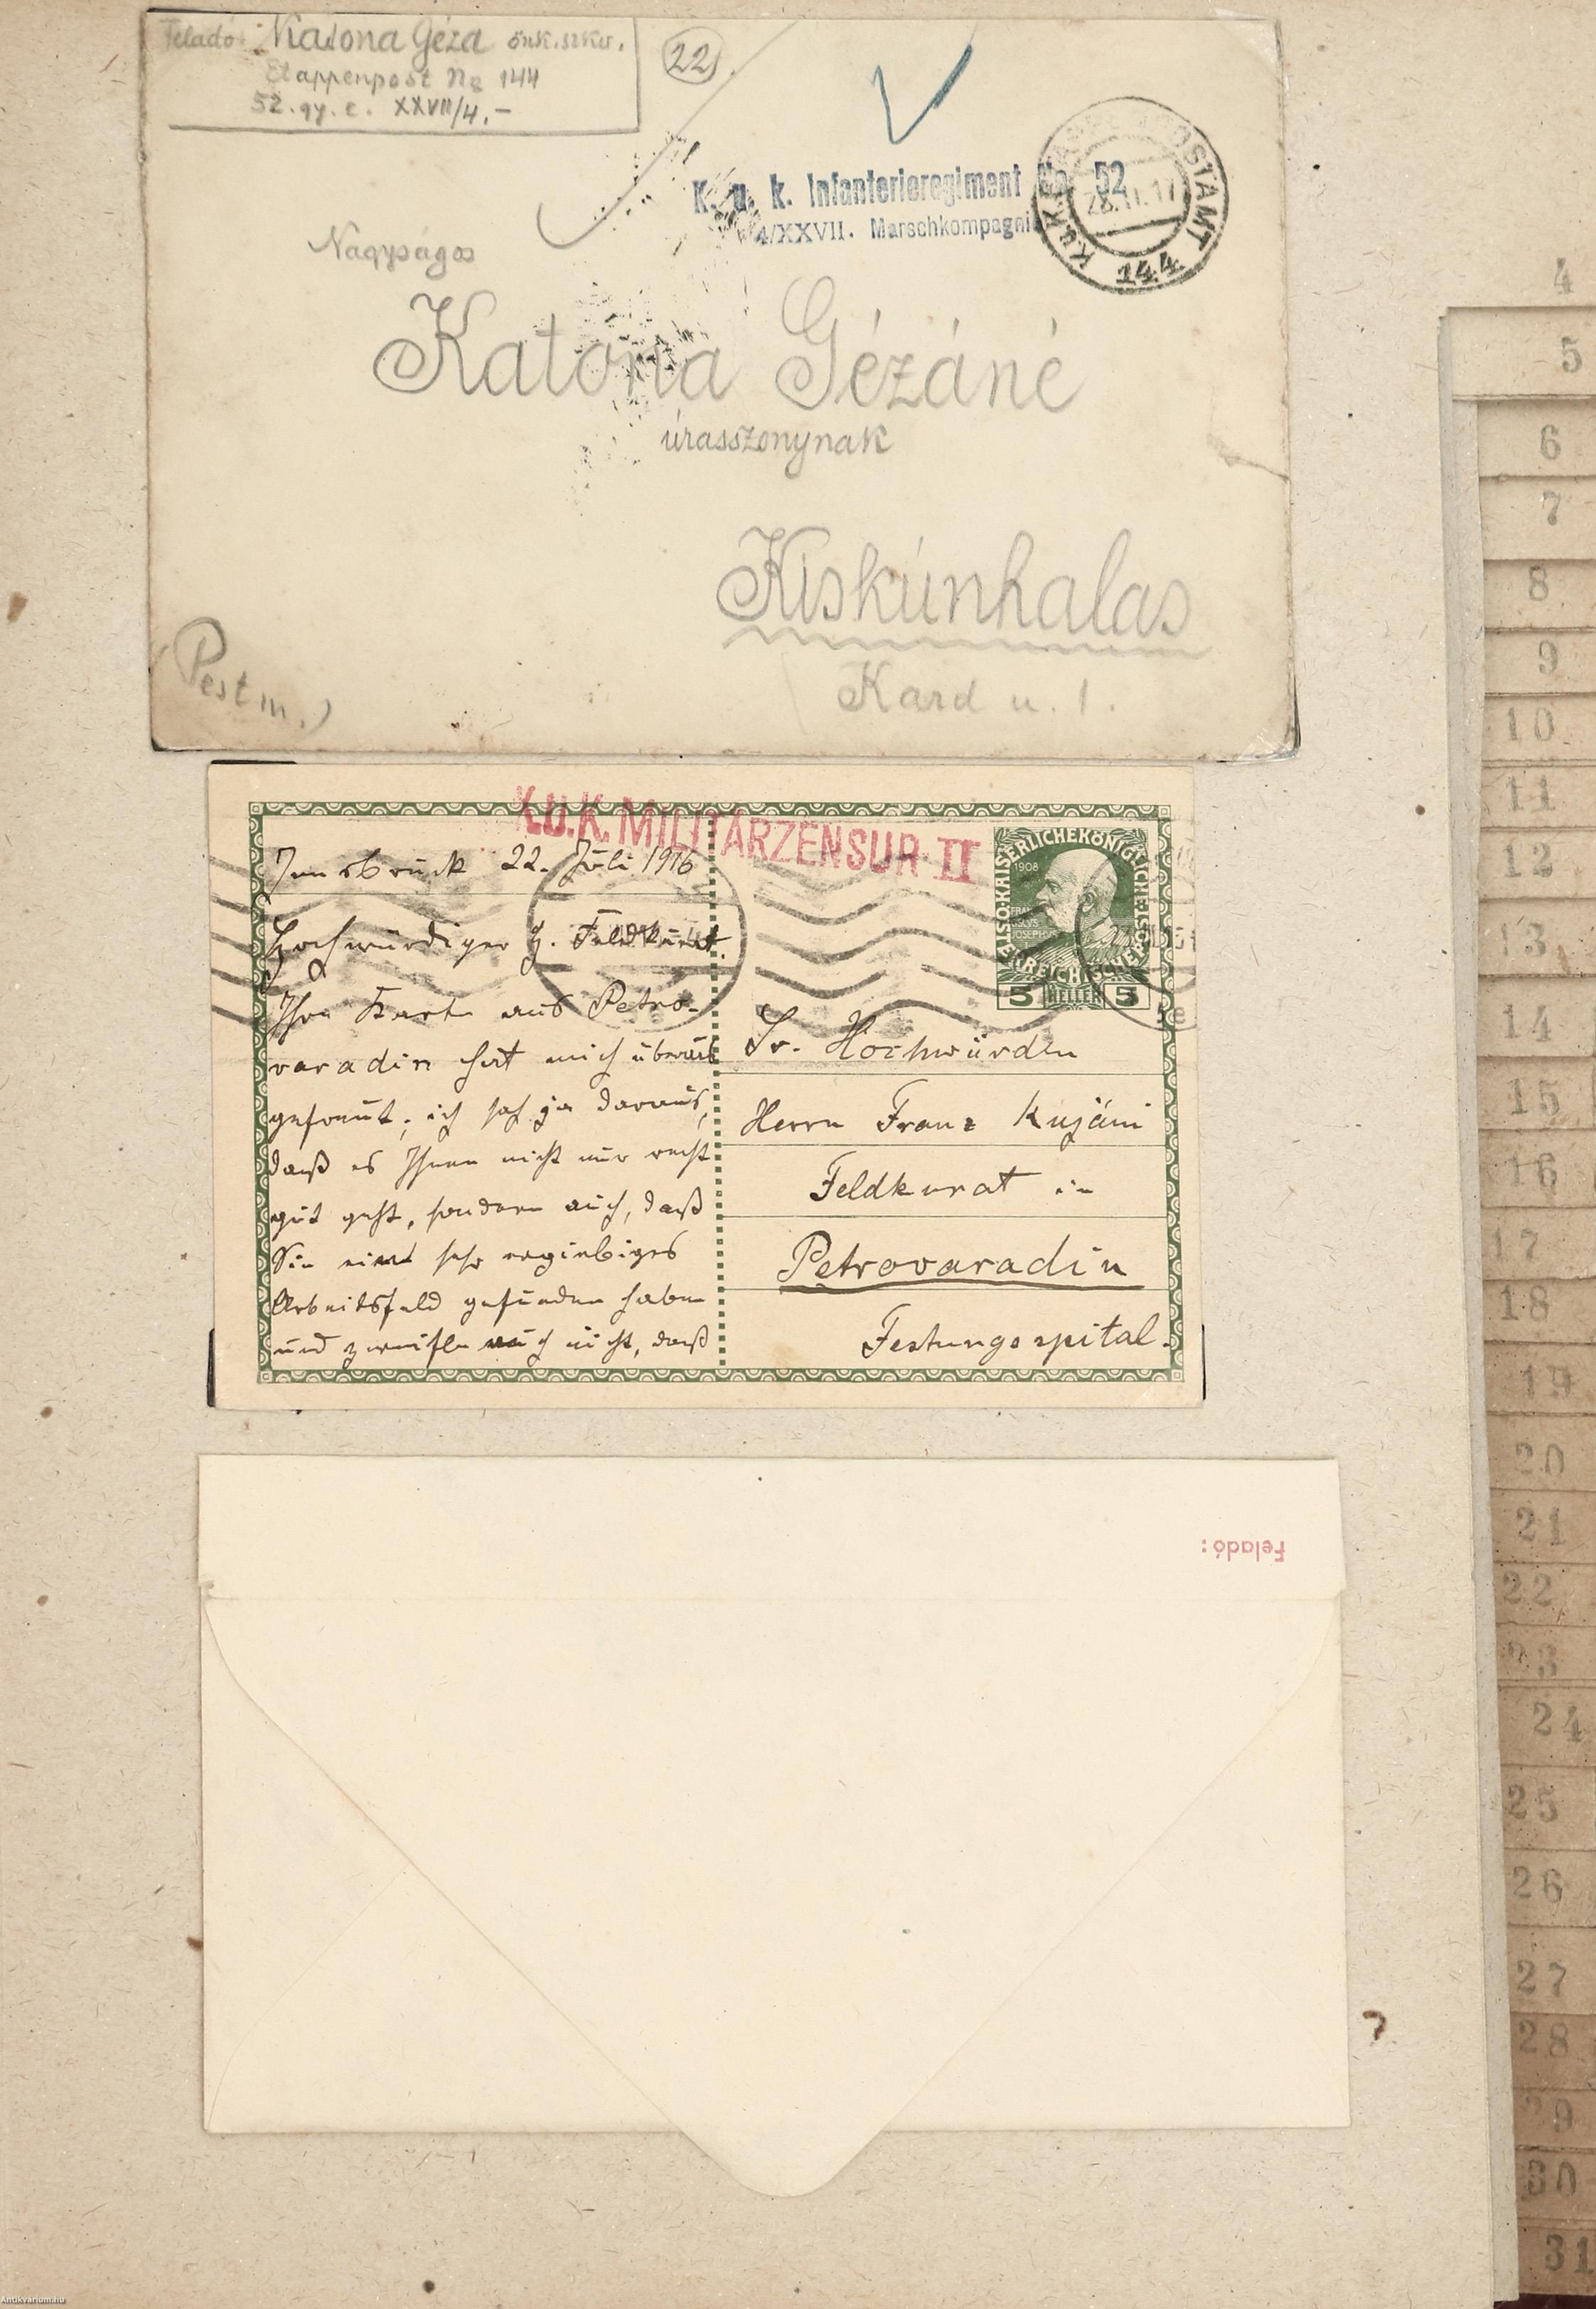 Feladó: Katona Géza önk. szkv.
Etappenpost No 144
52. gy. e. XXVII/4.-
22
K. u. k. Infanterieregiment No. 52
4/XXVII. Marschkompagnie
K.u.K. POSTAMT
144
Nagyságos
Katona Gézáné
úrasszonynak
Kiskúnhalas
Kard u. 1.
(Pest m.)
K.U.K. MILITÄRZENSUR II
Innsbruck 22. Juli 1916
Hochwürdiger H. Feldkurat
Ihre Karte aus Petro-
varadin hat mich überaus
gefreut; ich sah ja daraus,
daß es Ihnen nicht nur recht
gut geht, sondern auch, daß
Sie ein sehr ergiebiges
Arbeitsfeld gefunden haben
und zweifle auch nicht, daß
KAISERLICHE KÖNIGLICHE ÖSTERREICHISCHE
1908
5 HELLER 5
Sr. Hochwürden
Herrn Franz Kujáni
Feldkurat in
Petrovaradin
Festungsspital.
Feladó:
4
5
6
7
8
9
10
11
12
13
14
15
16
17
18
19
20
21
22
23
24
25
26
27
28
9
30
31
?
Antikvarium.hu